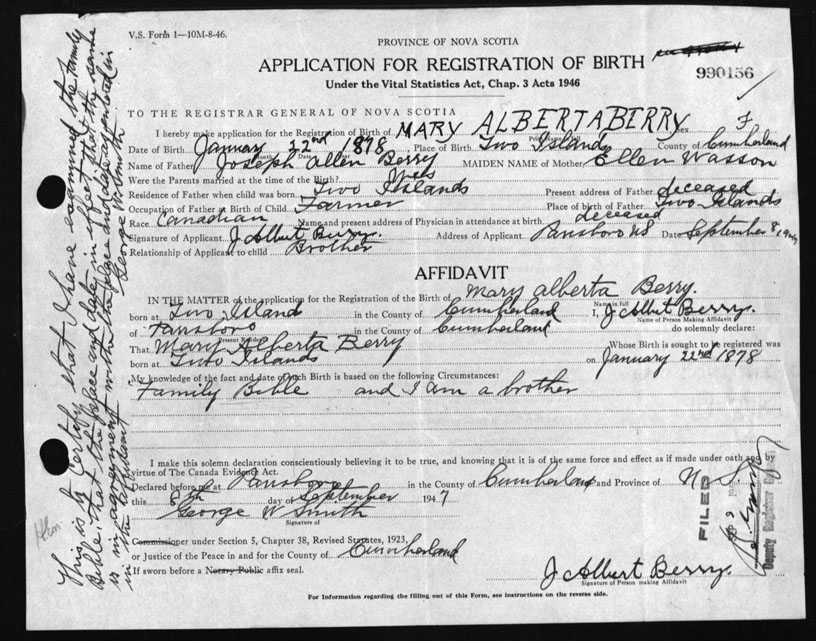 V.S. Form 1—10M-8-46.
PROVINCE OF NOVA SCOTIA
APPLICATION FOR REGISTRATION OF BIRTH
Under the Vital Statistics Act, Chap. 3 Acts 1946
990156
TO THE REGISTRAR GENERAL OF NOVA SCOTIA
I hereby make application for the Registration of Birth of MARY ALBERTA BERRY Sex F
Date of Birth January 22nd 1878 Place of Birth Two Islands County of Cumberland
Name of Father Joseph Allen Berry MAIDEN NAME of Mother Ellen Wasson
Were the Parents married at the time of the Birth? Yes
Residence of Father when child was born Two Islands Present address of Father deceased
Occupation of Father at Birth of Child Farmer Place of birth of Father Two Islands
Race Canadian Name and present address of Physician in attendance at birth deceased
Signature of Applicant J Albert Berry. Address of Applicant Parrsboro NS Date September 8 1947
Relationship of Applicant to child Brother
AFFIDAVIT
IN THE MATTER of the application for the Registration of the Birth of Mary Alberta Berry.
Name in full
born at Two Island in the County of Cumberland I, J Albert Berry.
Name of Person Making Affidavit
of Parrsboro of Cumberland do solemnly declare:
Present Residence
That Mary Alberta Berry Whose Birth is sought to be registered was
born at Two Islands on January 22nd 1878
My knowledge of the fact and date of such Birth is based on the following Circumstances:
Family Bible and I am a brother
I make this solemn declaration conscientiously believing it to be true, and knowing that it is of the same force and effect as if made under oath and by
virtue of The Canada Evidence Act.
Declared before me at Parrsboro in the County of Cumberland and Province of N. S.
this 8th day of September 1947
George W Smith
Signature of
Commissioner under Section 5, Chapter 38, Revised Statutes, 1923,
or Justice of the Peace in and for the County of Cumberland
If sworn before a Notary Public affix seal.
J Albert Berry.
Signature of Person making Affidavit
For Information regarding the filling out of this Form, see instructions on the reverse side.
This is to certify that I have examined the family
Bible, that the place and date, in effect that the same
is in agreement with the place and date as entered in
George W Smith
FILED
Deputy Registrar